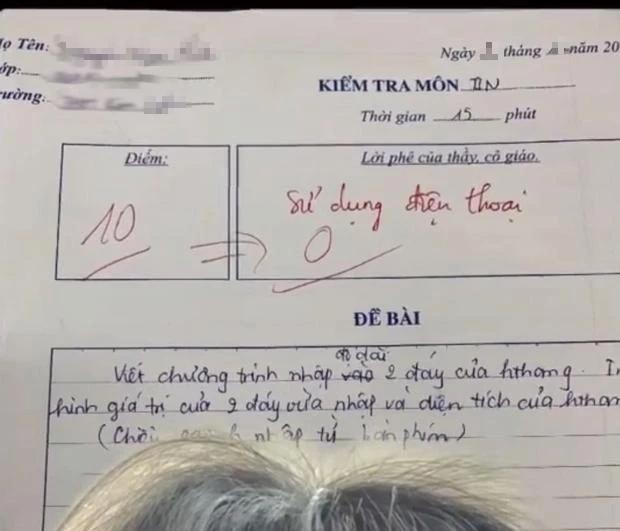 Họ Tên:
Lớp:
Trường:
Ngày tháng năm 20
KIỂM TRA MÔN TIN
Thời gian 15 phút
Điểm:
Lời phê của thầy, cô giáo.
10
Sử dụng điện thoại
0
ĐỀ BÀI
độ dài
Viết chương trình nhập vào 2 đáy của hthang. In
hình giá trị của 2 đáy vừa nhập và diện tích của hthan
(Chiều cao nhập từ bàn phím)